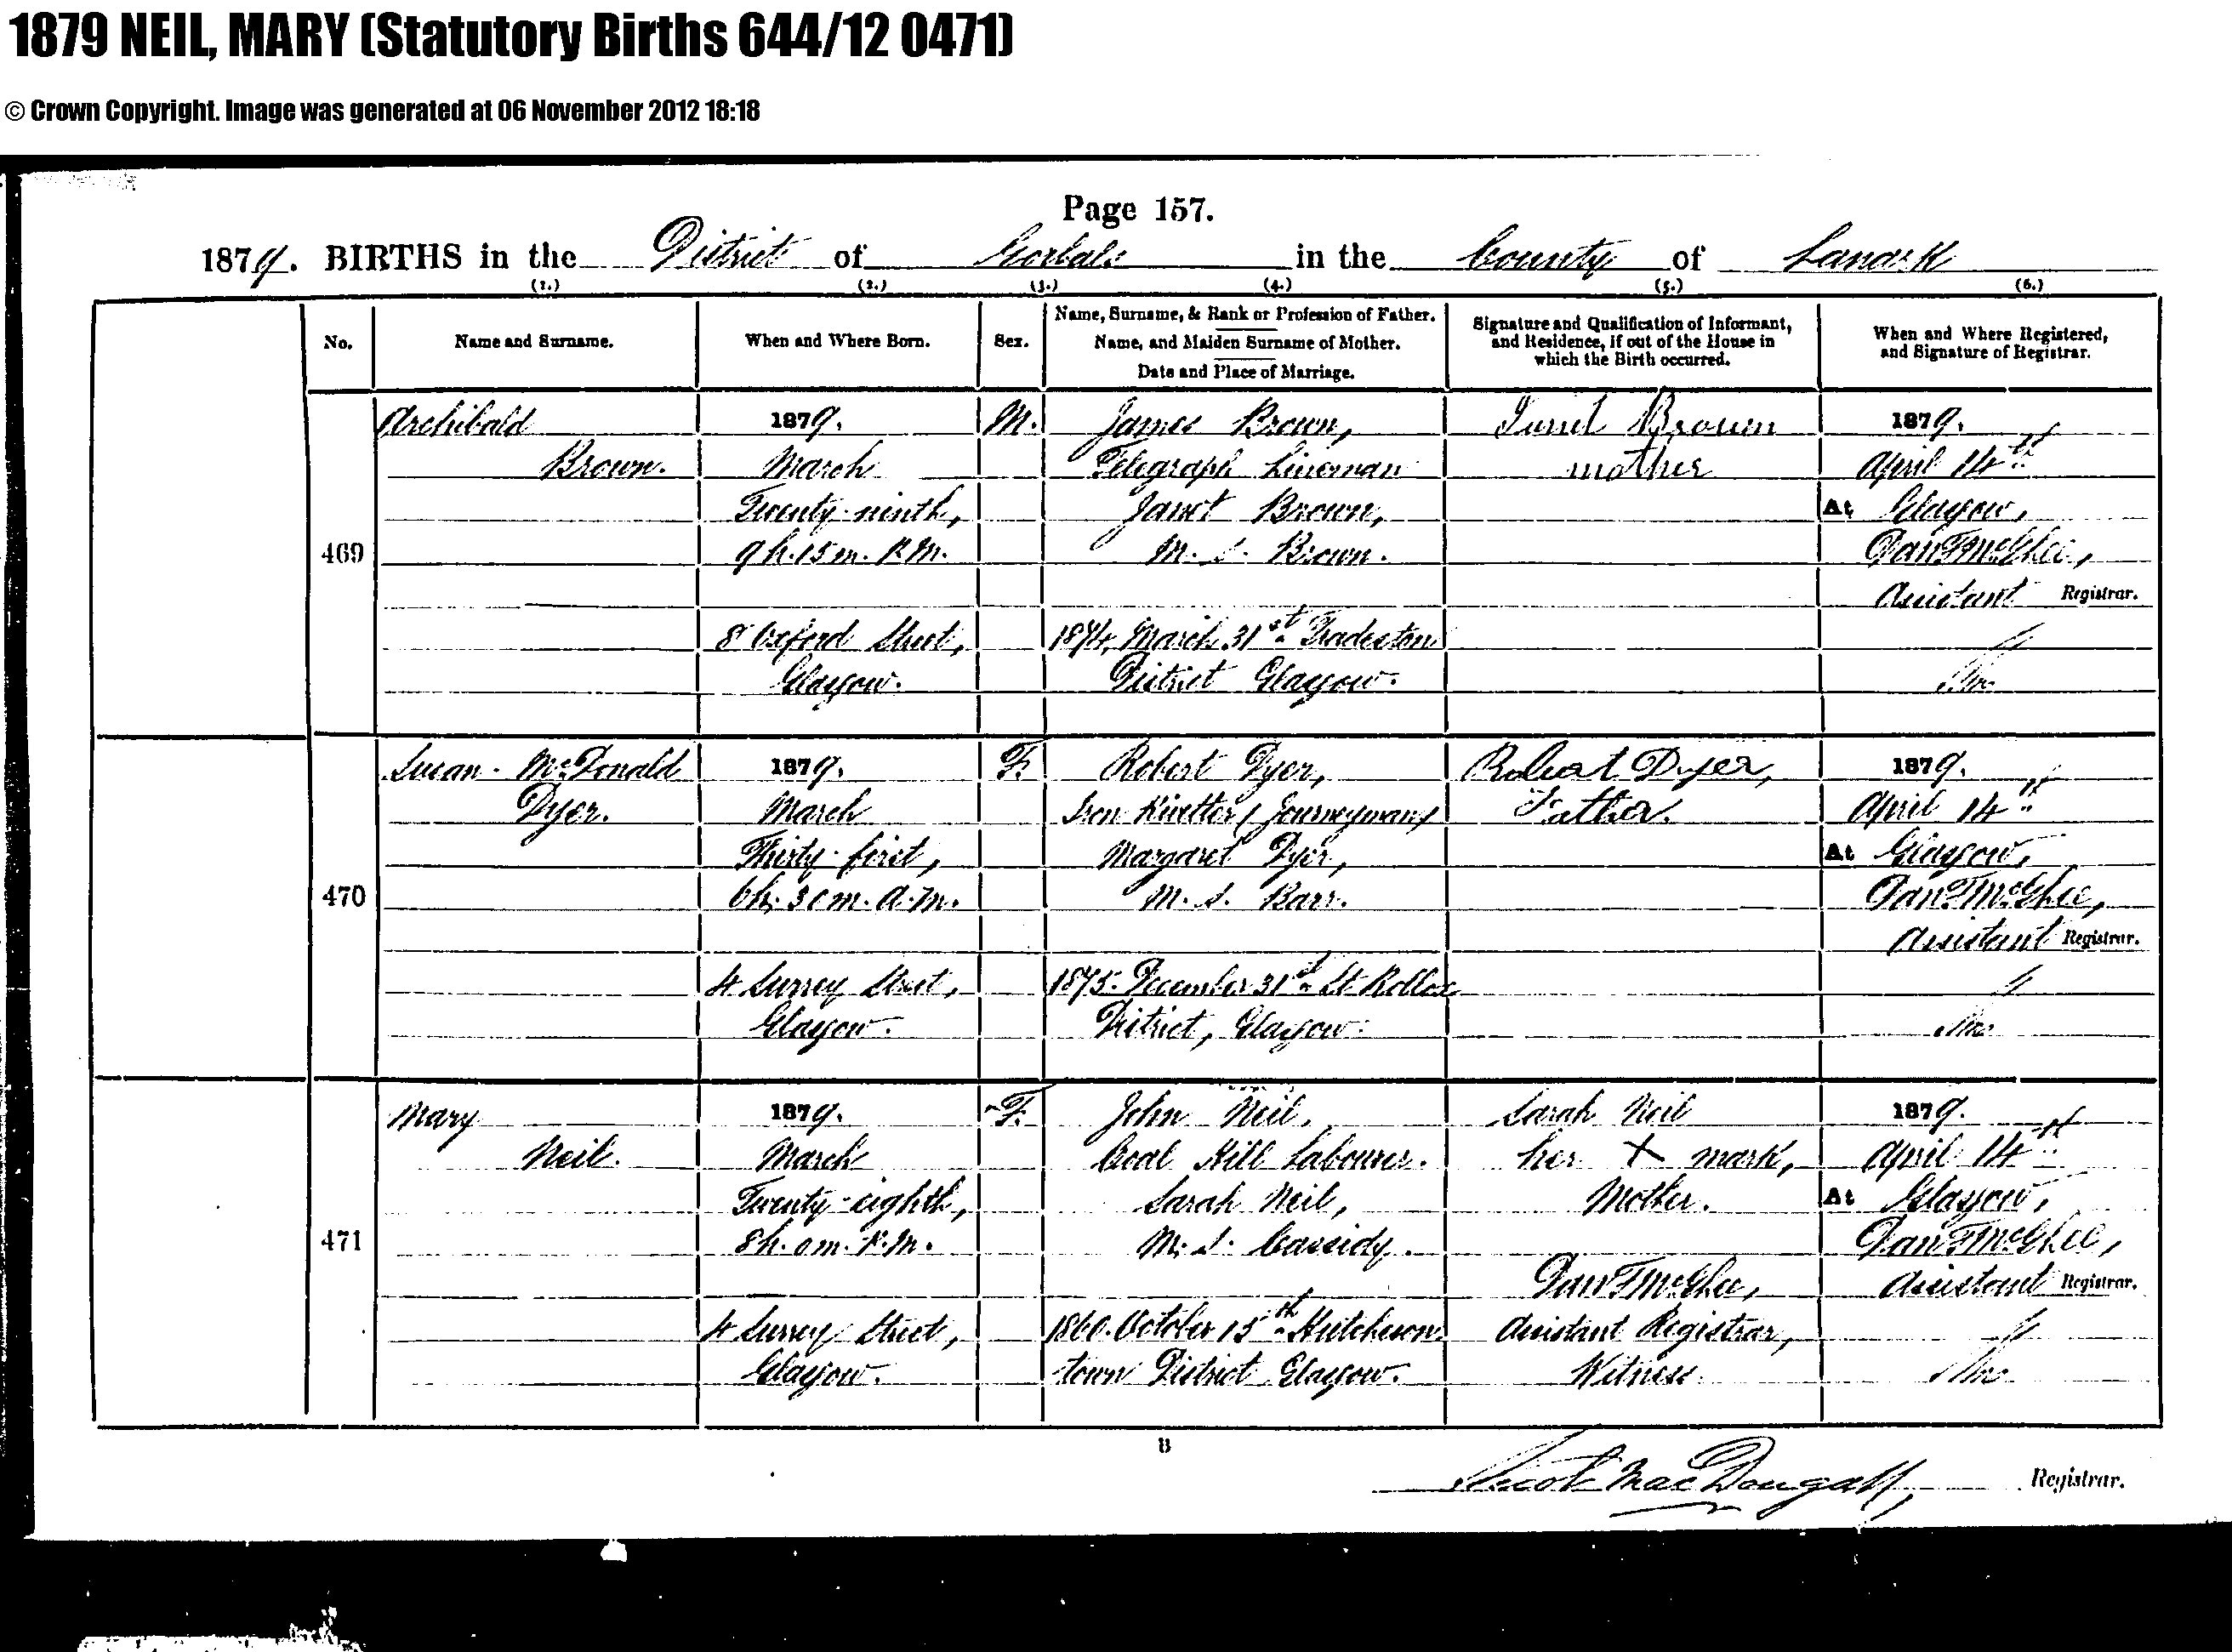 1879 NEIL, MARY (Statutory Births 644/12 0471)
© Crown Copyright. Image was generated at 06 November 2012 18:18
Page 157.
1879. BIRTHS in the District of Gorbals in the County of Lanark
(1.) (2.) (3.) (4.) (5.) (6.)
No.
Name and Surname.
When and Where Born.
Sex.
Name, Surname, & Rank or Profession of Father.
Name, and Maiden Surname of Mother.
Date and Place of Marriage.
Signature and Qualification of Informant,
and Residence, if out of the House in
which the Birth occurred.
When and Where Registered,
and Signature of Registrar.
469
Archibald
Brown.
1879.
March
Twenty-ninth,
9h. 15m. P.M.
8 Oxford Street,
Glasgow.
M.
James Brown,
Telegraph Lineman
Janet Brown,
M. S. Brown.
1874, March 31st Tradeston
District Glasgow.
Brown
mother
1879.
April 14th
At Glasgow,
Dan F McGhee,
Assistant Registrar.
470
Susan McDonald
Dyer.
1879.
March
Thirty-first,
6h. 30m. A.M.
4 Surrey Street,
Glasgow.
F.
Robert Dyer,
Iron Rivetter (Journeyman)
Margaret Dyer,
M. S. Barr.
1875. December 31st St Rollox
District, Glasgow.
Robert Dyer,
Father.
1879.
April 14th
At Glasgow,
Dan F McGhee,
Assistant Registrar.
471
Mary
Neil.
1879.
March
Twenty-eighth,
8h. 0m. P.M.
4 Surrey Street,
Glasgow.
F.
John Neil,
Coal Hill Labourer.
Sarah Neil,
M. S. Cassidy.
1860. October 15th Hutcheson
town District Glasgow.
Sarah Neil
her X mark,
Mother.
Dan F McGhee,
Assistant Registrar,
Witness.
1879.
April 14th
At Glasgow,
Dan F McGhee,
Assistant Registrar.
B
MacDougall, Registrar.